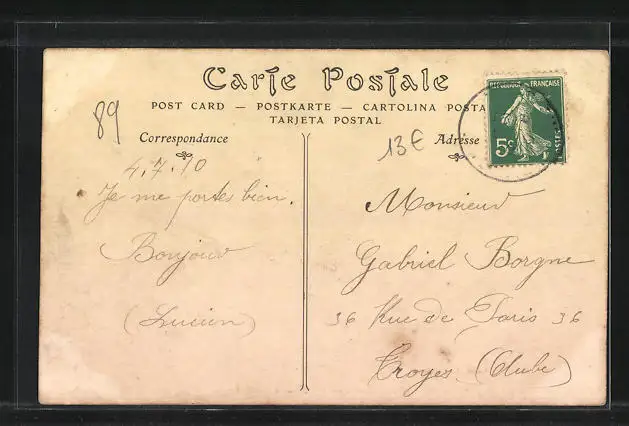 Carte Postale
POST CARD — POSTKARTE — CARTOLINA POSTA
TARJETA POSTAL
89
Correspondance
4.7.10
Je me portes bien.
Bonjour
(Lucien)
13€
Adresse
REPUBLIQUE FRANÇAISE
5c
POSTES
Monsieur
Gabriel Borgne
36 Rue de Paris 36
Troyes (Aube)